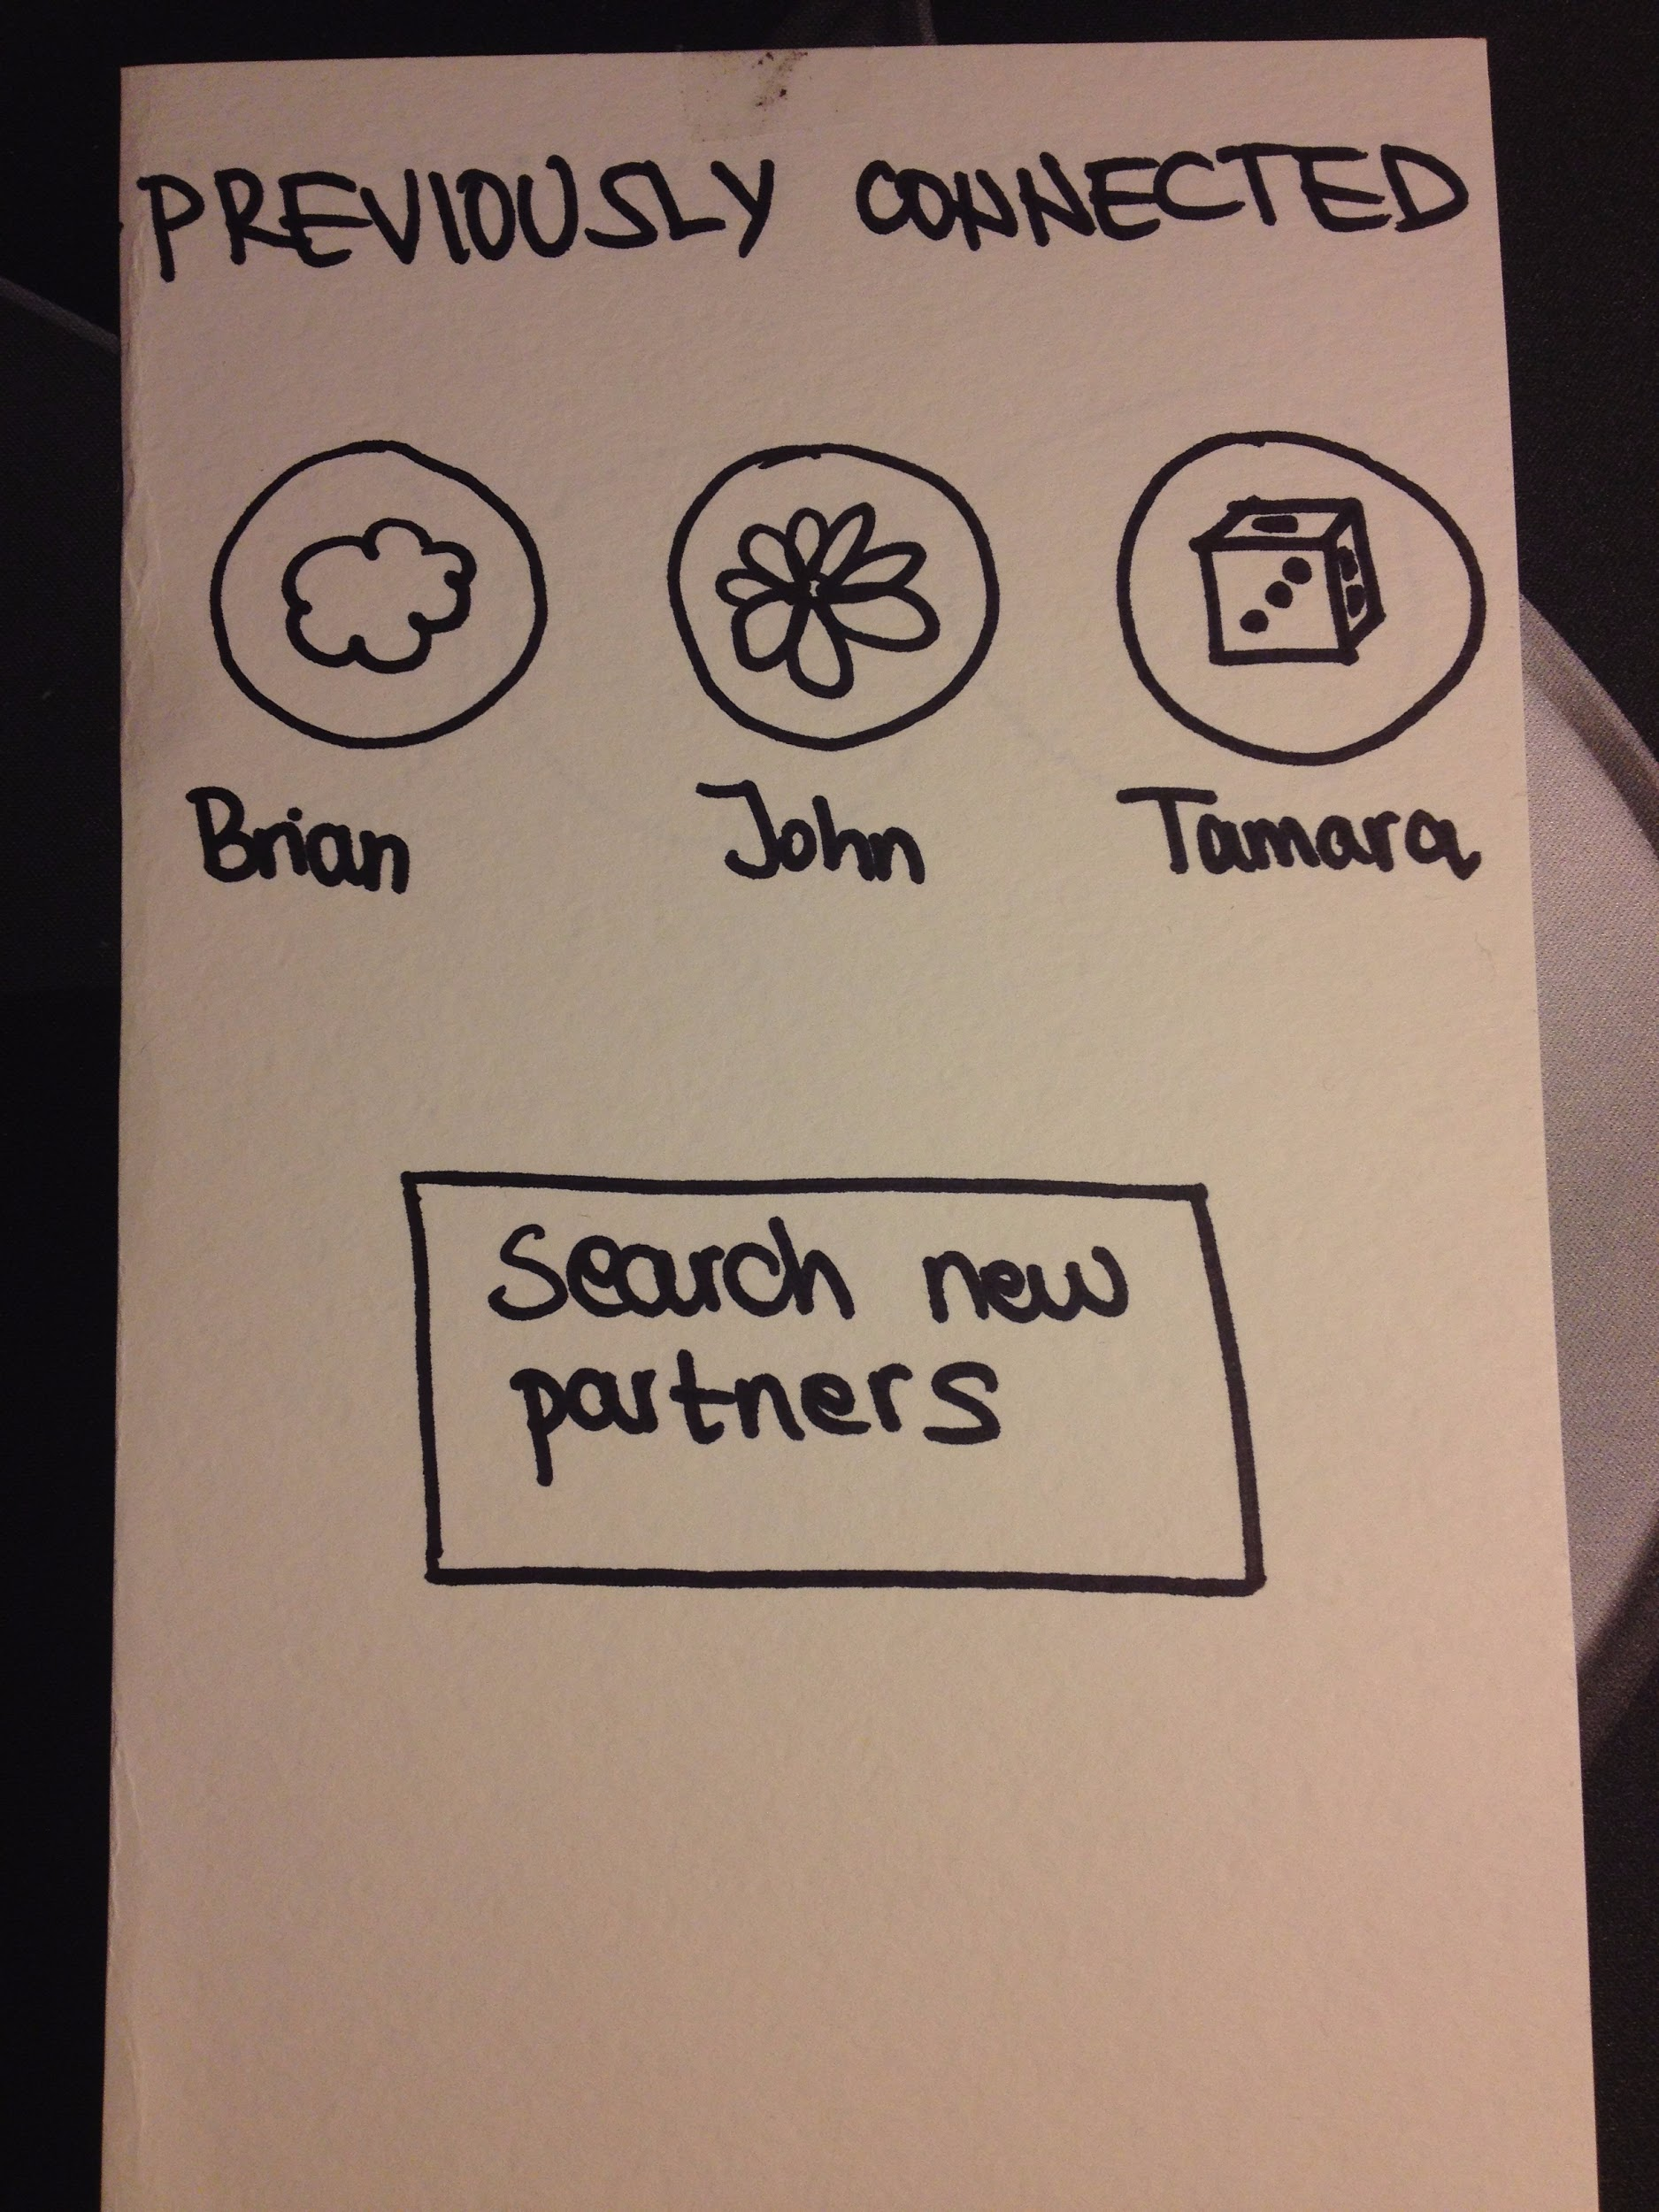 PREVIOUSLY CONNECTED
Brian John Tamara
Search new
partners